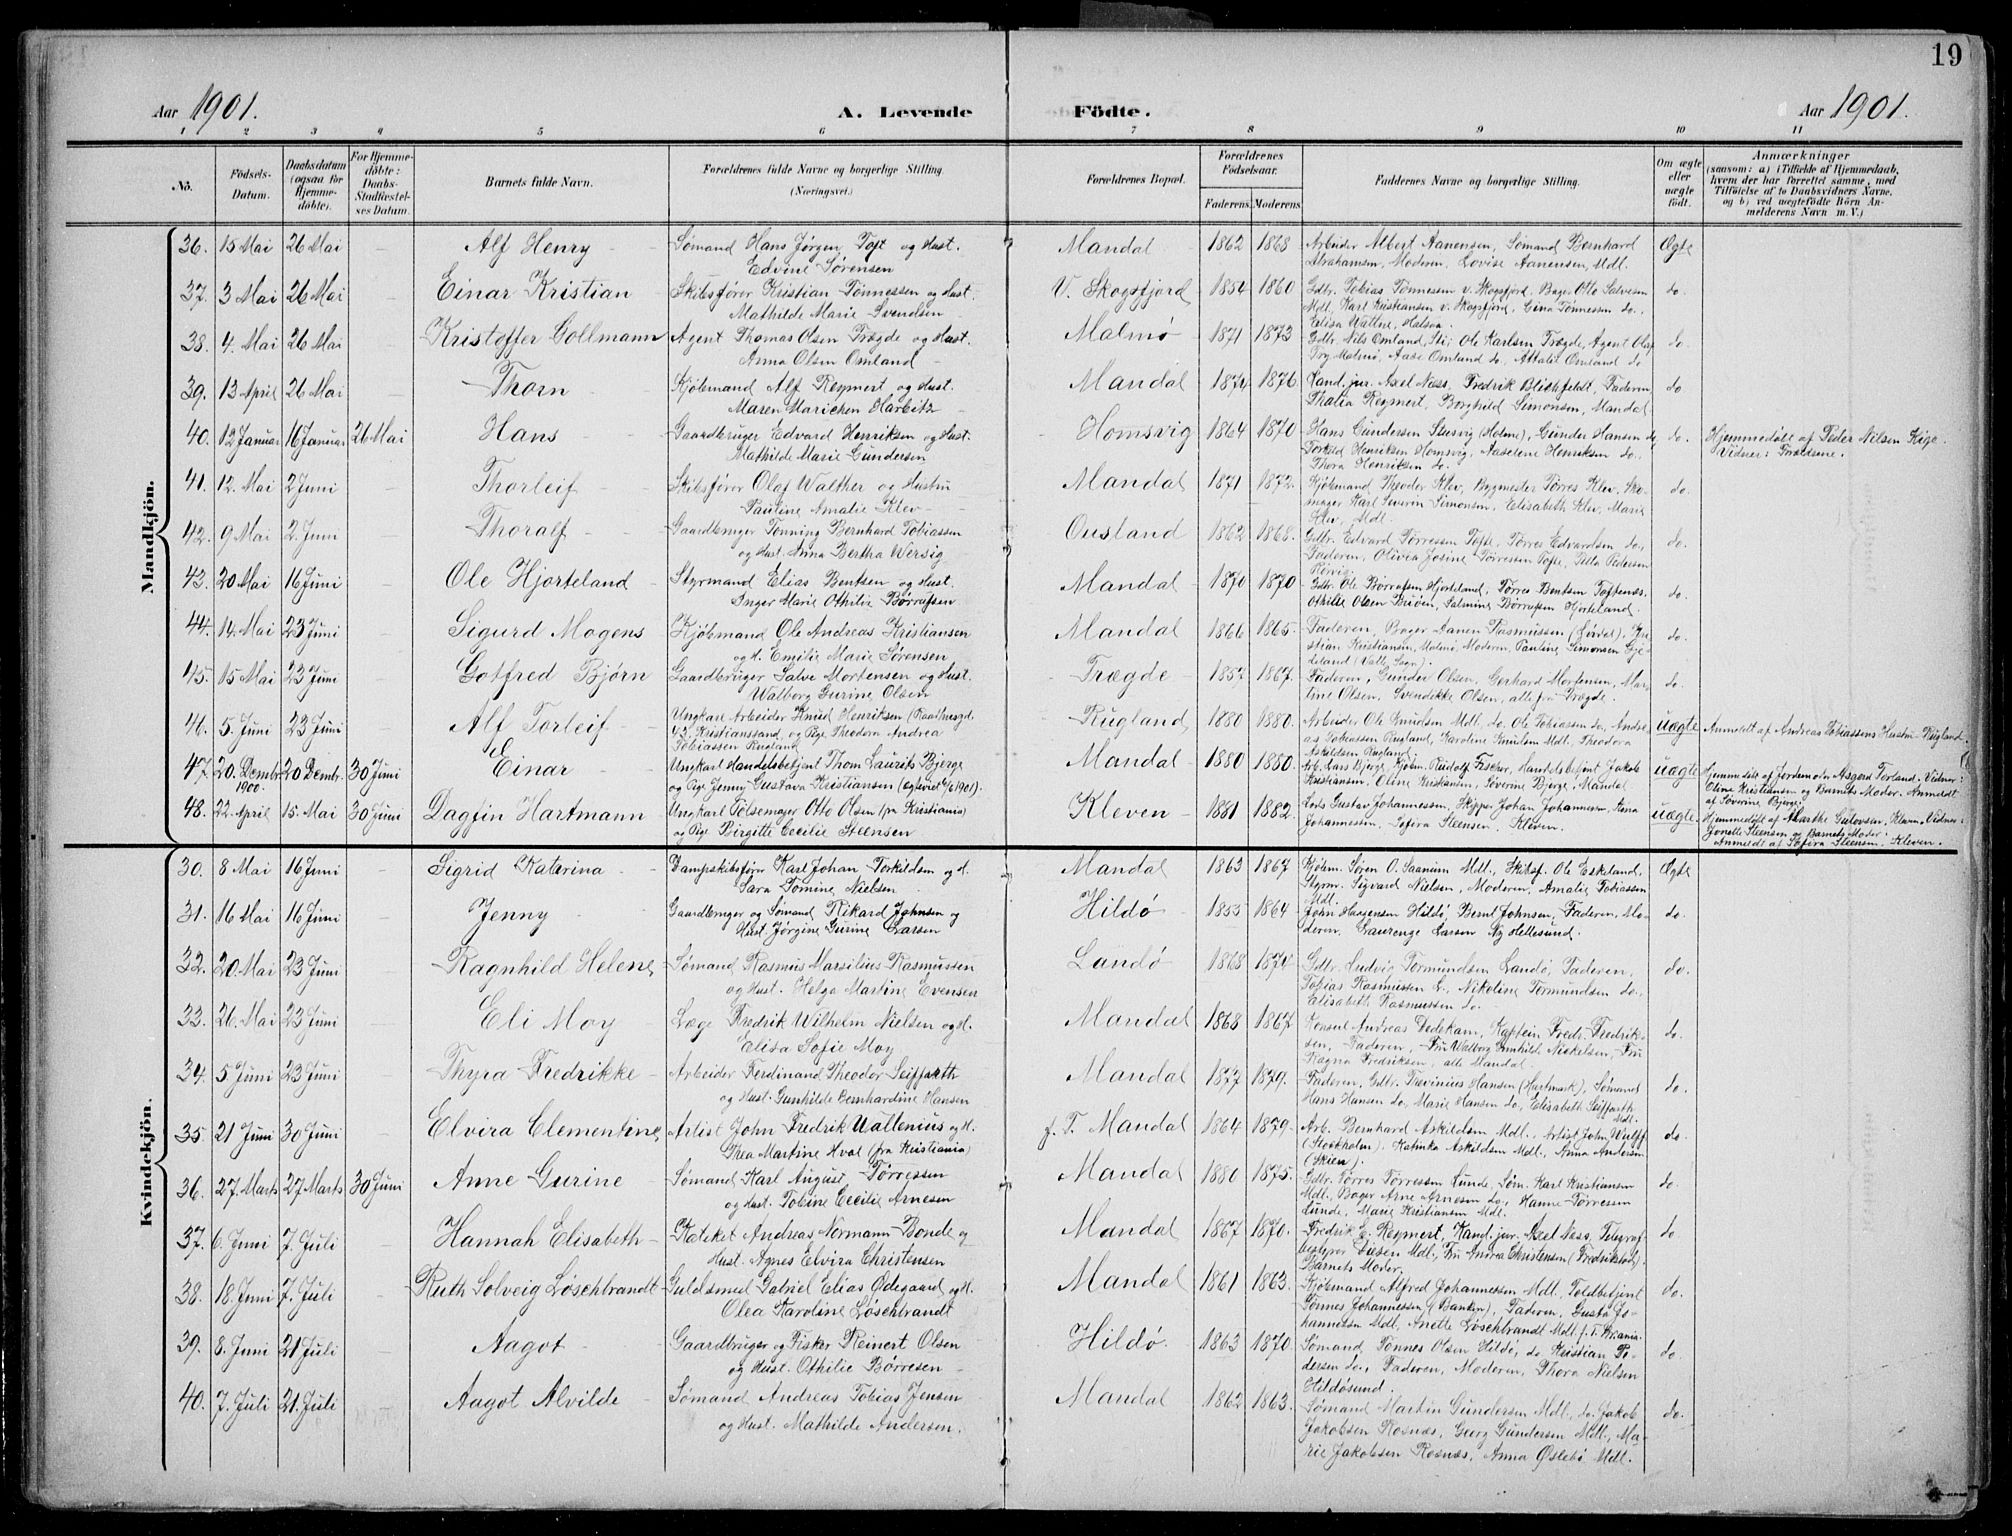 19
Aar 1901. A. Levende Födte. Aar 1901.
1 2 3 4 5 6 7 8 9 10 11
No. Födsels-Datum. Daabsdatum (ogsaa for Hjemme-döbte). For Hjemme-döbte: Daabs-Stadfæstel-ses Datum. Barnets fulde Navn. Forældrenes fulde Navne og borgerlige Stilling. (Næringsvei.) Forældrenes Bopæl. Forældrenes Födselsaar. Faderens. Moderens. Faddernes Navne og borgerlige Stilling. Om ægte eller uægte födt. Anmærkninger (saasom: a) i Tilfælde af Hjemmedaab, hvem der har forrettet samme, med Tilföielse af to Daabsvidners Navne, og b) ved uægtefödte Börn An-melderens Navn m. V.)
Mandkjön.
36. 15 Mai 26 Mai Alf Henry Sømand Hans Jørgen Toft og Hust. Mandal 1862 1868 Arbeider Albert Aanensen, Sømand Bernhard Ægte
Edvine Sørensen Abrahamsen, Moderen, Lovise Aanensen, Mdl.
37. 3 Mai 26 Mai Einar Kristian Skibsfører Kristian Tønnessen og Hust. V. Skogsfjord 1854 1860 Gdbr. Tobias Tønnesen v. Skogsfjord, Bager Otto Salvesen do.
Mathilde Marie Svendsen Mdl., Karl Kristiansen v. Skogsfjord, Gina Tønnessen do.,
Elisa Wattne, Halsaa.
38. 4. Mai 26 Mai Kristoffer Collmann Agent Thomas Olsen Trægde og Hust. Malmø 1871 1873 Gdbr. Nils Omland, Sti: Ole Karlsen Trægde, Agent Olaf do.
Anna Olsen Omland Try Malmø, Aase Omland do, Attalie Omland do
39. 13 April 26 Mai Thorn Kjøbmand Alf Reymert og Hust. Mandal 1874 1876. Kand. jur. Axel Næss, Fredrik Blichfeldt, Faderen, do
Maren Marichen Harbitz Thalia Reymert, Borghild Simonsen, Mandal
40. 12 Januar 16 Januar 26 Mai Hans Gaardbruger Edvard Henriksen og Hust. Homsvig 1864 1870 Hans Gundersen Stusvig (Holme), Gunder Hansen do, do. Hjemmedøbt af Peder Nilsen Kige.
Mathilde Marie Gundersen Torkeld Henriksen Homsvig, Naselene Henriksen do., Vidner: Forældrene.
Thora Henriksen do.
41. 12. Mai 2 Juni Thorleif Skibsfører Olaf Walther og Hustru Mandal 1871 1872. Kjøbmand Theodor Klev, Bygmester Tørres Klev, Sko- do.
Pauline Amalie Klev mager Karl Severin Simonsen, Elisabeth Klev, Marie
Klev, Mdl.
42. 9 Mai 2. Juni Thoralf Gaardbruger Tønning Bernhard Tobiassen Ousland 1862 1868. Gdbr. Edvard Tørressen Tofte, Tørres Edvardsen do., do.
og Hust. Anna Bertha Wersig Faderen, Olivia Josine Tørressen Tofte, Pedersen
43. 20 Mai 16 Juni Ole Hjorteland Styrmand Elias Bentsen og Hust. Mandal 1870 1870 Gdbr. Ole Børrufsen Hjorteland, Tørres Bentsen Toftenæs. do.
Inger Marie Othilie Børrufsen Othilie Olsen Buøen, Salmine Børrufsen Hjorteland.
44. 14. Mai 23 Juni Sigurd Mogens Kjøbmand Ole Andreas Kristiansen Mandal 1866 1865. Faderen, Bager Aanen Rasmussen, Kri- do.
og H. Emilie Marie Sørensen stian Kristiansen, Malmø, Moderen, Pauline Simonsen
45. 15 Mai 23 Juni Gotfred Bjørn Gaardbruger Salve Mortensen og Hust. Trægde 1857 1867. Faderen, Gunder Olsen, Gerhard Mortensen, Mar- do.
Walborg Gurine Olsen tine Olsen, Svendekke Olsen, alle fra Trægde.
46. 5. Juni 23 Juni Alf Torleif Ungkarl Arbeider Knud Henriksen (Raadhusgd. Rugland 1880 1880. Arbeider Ole Knudsen Mdl. do. Ole Tobiassen do, Andre- uægte Anmeldt af Andreas Tobiassens Hustru Rugland.
43 Kristianssand, og Pige Theodora Andrea as Tobiassen Rugland, Karoline Knudsen Mdl. Theodora
Tobiassen Rugland Askildsen Rugland.
47. 20. Dembr. 1900. 20 Dembr. 30 Juni Einar Ungkarl Handelsbetjent Thom Laurits Bjerge Mandal 1880 1880. Arb. Lars Bjerge, Kjøbm. Rudolf Fischer, Handelsbetjent Jakob uægte Hjemmedøbt af Jordemoder Asgerd Torland. Vidner:
og Pige Jenny Gustava Kristiansen (egteviet 6/6 1901). Kristiansen, Oline Kristiansen, Søverine Bjerge, Mandal Oline Kristiansen og Barnets Moder. Anmeldt
af Søverine Bjerge.
48. 22. April 15. Mai 30 Juni Dagfin Hartmann Ungkarl Pølsemager Otto Olsen (fra Kristiania) Kleven 1881 1882. Lods Gustav Johannessen, Skipp. Johan Johannessen, Anna uægte. Hjemmedøbt af Marthe Gulovsen, Kleven. Vidner:
og Pige Birgitte Cecilie Steensen Johannessen, Sofira Steensen, Kleven. Jonette Steensen og Barnets Moder.
Anmeldt af Sofira Steensen, Kleven.
Kvindekjön.
30. 8 Mai 16 Juni Sigrid Katarina Dampskibsfører Karl Johan Torkildsen og H. Mandal 1863 1867 Kjøbm. Søren O. Saanum Mdl., Skibsf. Ole Eskeland, Ægte
Sara Tomine Nielsen Styrm. Sigvard Nielsen, Moderen, Amalie Tobiassen
Mdl.
31. 16 Mai 16 Juni Jenny Gaardbruger og Sømand Rikard Johnsen og Hildø 1855 1864 John Haagensen Hildø, Bernt Johnsen, Faderen, Mo- do.
Hust. Jørgine Gurine Larsen deren, Laurenze Larsen Ny Hellesund.
32. 20. Mai 23 Juni Ragnhild Helene Sømand Rasmus Marsilius Rasmussen Landø 1868 1874 Gdbr. Ludvig Tormundsen Landø, Faderen, do.
og Hust. Helga Martine Evensen Tobias Rasmussen L., Nikoline Tormundsen do.,
Elisabeth Rasmussen do.
33. 26. Mai 23 Juni Eli Moy Læge Fredrik Wilhelm Nielsen og H. Mandal 1868 1867 Konsul Andreas Dedekam, Kaptein Fredr. Fredrik- do.
Elisa Sofie Moy sen, Faderen, Fru Walborg Gunhild Mickelsen, Fru
Ragna Fredriksen, alle Mandal
34. 5. Juni 23 Juni Thyra Fredrikke Arbeider Ferdinand Theodor Seiffarth Mandal 1877 1879. Faderen, Gdbr. Trevinius Hansen (Hartmark), Sømand do.
og Hust. Gunhilde Bernhardine Hansen Hans Hansen do, Marie Hansen do, Elisabeth Seiffarth
Mdl.
35. 21 Juni 30 Juni Elvira Clementine Artist John Fredrik Wallenius og H. f. T. Mandal 1864 1879. Arb. Bernhard Askildsen Mdl., Artist John Wulff do.
Thea Martine Hval (fra Kristiania) (Stockholm), Kathinka Askildsen Mdl., Anna Andersen
(Skien).
36. 27. Marts 27 Marts 30 Juni Anne Gurine Sømand Karl August Tørressen Mandal 1880 1875. Gdbr. Tørres Tørressen Lunde, Søm. Karl Kristiansen do.
og Hust. Tobine Cecilie Arnesen Mdl., Bager Arne Arnesen do, Hanne Tørressen
Lunde, Marie Kristiansen Mdl.
37. 6. Juni 7. Juli Hannah Elisabeth Kateket Andreas Normann Bonde og Mandal 1867 1870. Fredrik E. Reymert, Kand. jur. Axel Næss, Telegraf- do.
Hust. Agnes Elvira Christensen bestyrer Lassen Mdl., Fru Andrea Christensen (Fredrikstad),
Barnets Moder.
38. 18. Juni 7. Juli Ruth Solveig Løschbrandt Guldsmed Gabriel Elias Ødegaard og H. Mandal 1861 1863. Kjøbmand Alfred Johannessen Mdl., Toldbetjent do.
Olea Karoline Løschbrandt Tønnes Johannessen (Banken), Faderen, Gusta Jo-
hannessen Mdl., Anette Løschbrandt Mdl. f. T. Kr.ania.
39. 8. Juni 21 Juli Aagot Gaardbruger og Fisker Reinert Olsen Hildø 1863 1870. Sømand Tønnes Olsen Hildø, do. Kristian Pe- do.
og Hust. Othilie Børresen dersen do., Faderen, Moderen, Thora Nielsen
Hildøsund.
40. 7. Juli 21. Juli Aagot Alvilde Sømand Andreas Tobias Jensen Mandal 1862 1863. Sømand Martin Gundersen Mdl., do. Jakob do.
og Hust. Mathilde Andersen. Jakobsen Rosnæs, Georg Gundersen Mdl., Ma-
rie Jakobsen Rosnæs, Anna Øslebø Mdl.